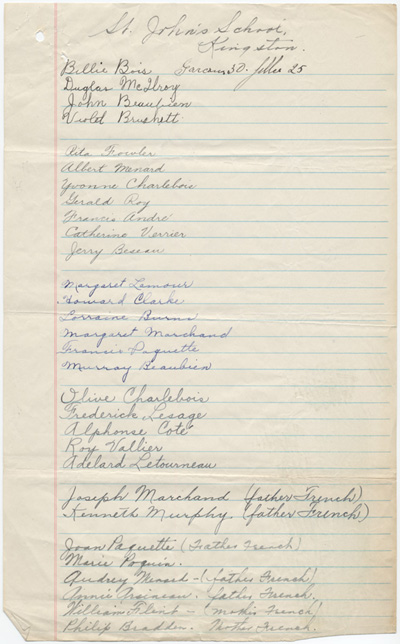 St. John's School,
Kingston.
Billie Bois Garcons 30. filles 25
Duglas McIlroy
John Beaupien
Violet Bruskett
Rita Fowler
Albert Menard
Yvonne Charlebois
Gerald Roy
Francis Andre
Catherine Verrier
Jerry Beseau
Margaret Lamour
Howard Clarke
Lorraine Burns
Margaret Marchand
Francis Paquette
Murray Beaubien
Olive Charlebois
Frederick Lesage
Alphonse Coté
Roy Vallier
Adelard Letourneau
Joseph Marchand (father French)
Kenneth Murphy (father French)
Joan Paquette (Father French)
Marie Poquin.
Audrey Menard - (father French)
Annie father French.
William Flint - (mother French)
Philip Bradden. Mother French.